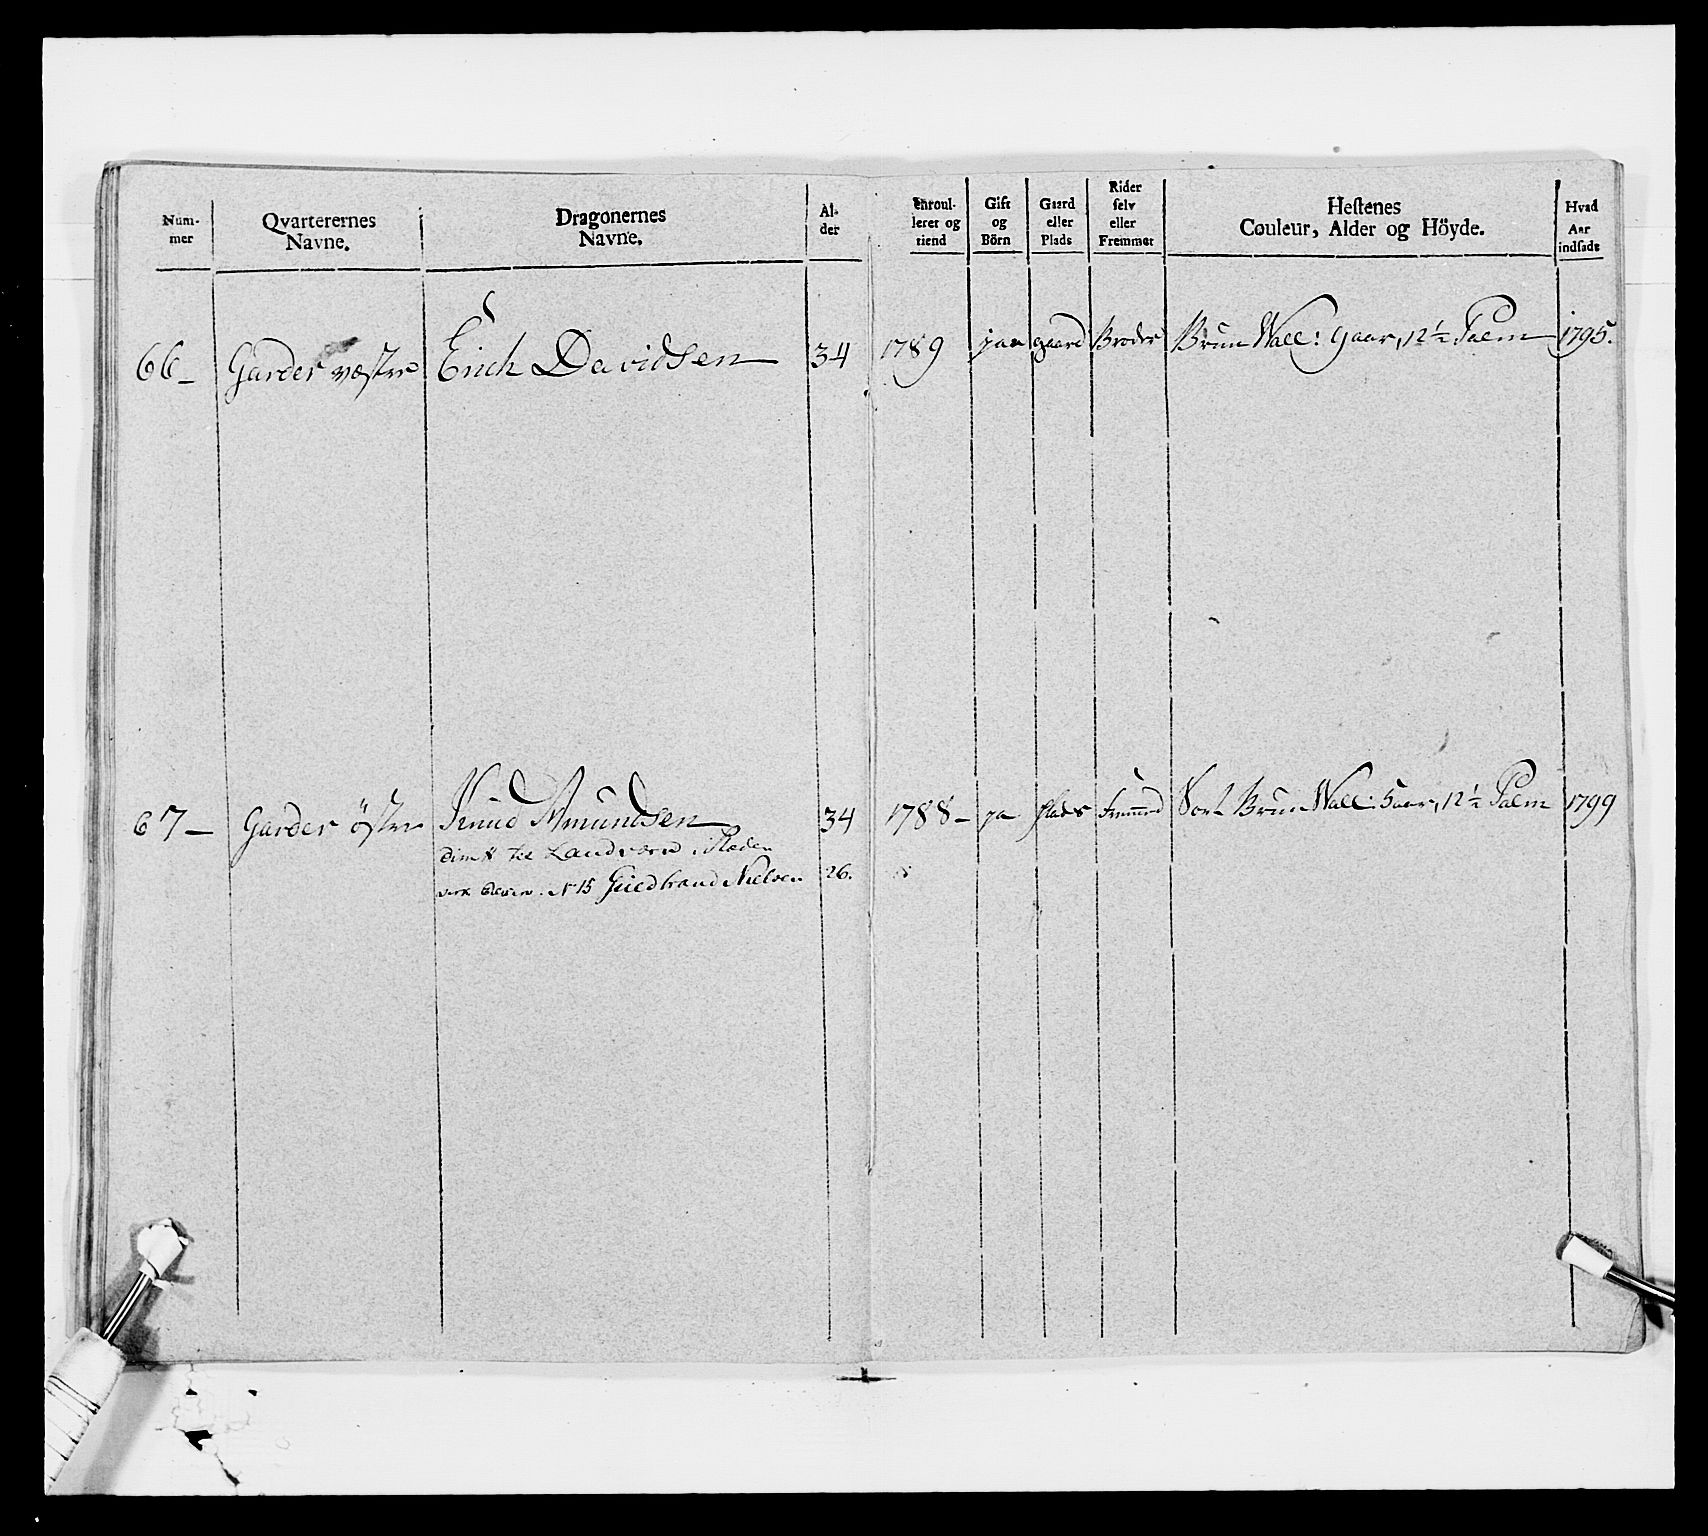 Num-
mer
Qvarterernes
Navne.
Dragonernes
Navne.
Al-
der
enroul-
leret og
tiend
Gift
og
Börn
Gaard
eller
Plads
Rider
selv
eller
Fremmet
Hestenes
Couleur, Alder og Höyde.
Hvad
Aar
indsadt
66 - Garder væstre Erich Davidsen 34 1789 jaa gaard Broder Brun Wall: 9 aar, 12½ Palm 1795.
67 - Garder östre Knud Amundsen 34 1788 - ja plads fremed Sort Brun Wall: 5 aar, 12½ Palm 1799
dimt til Landværn i Steden
N 15 Gudbrand Nielsen 26.